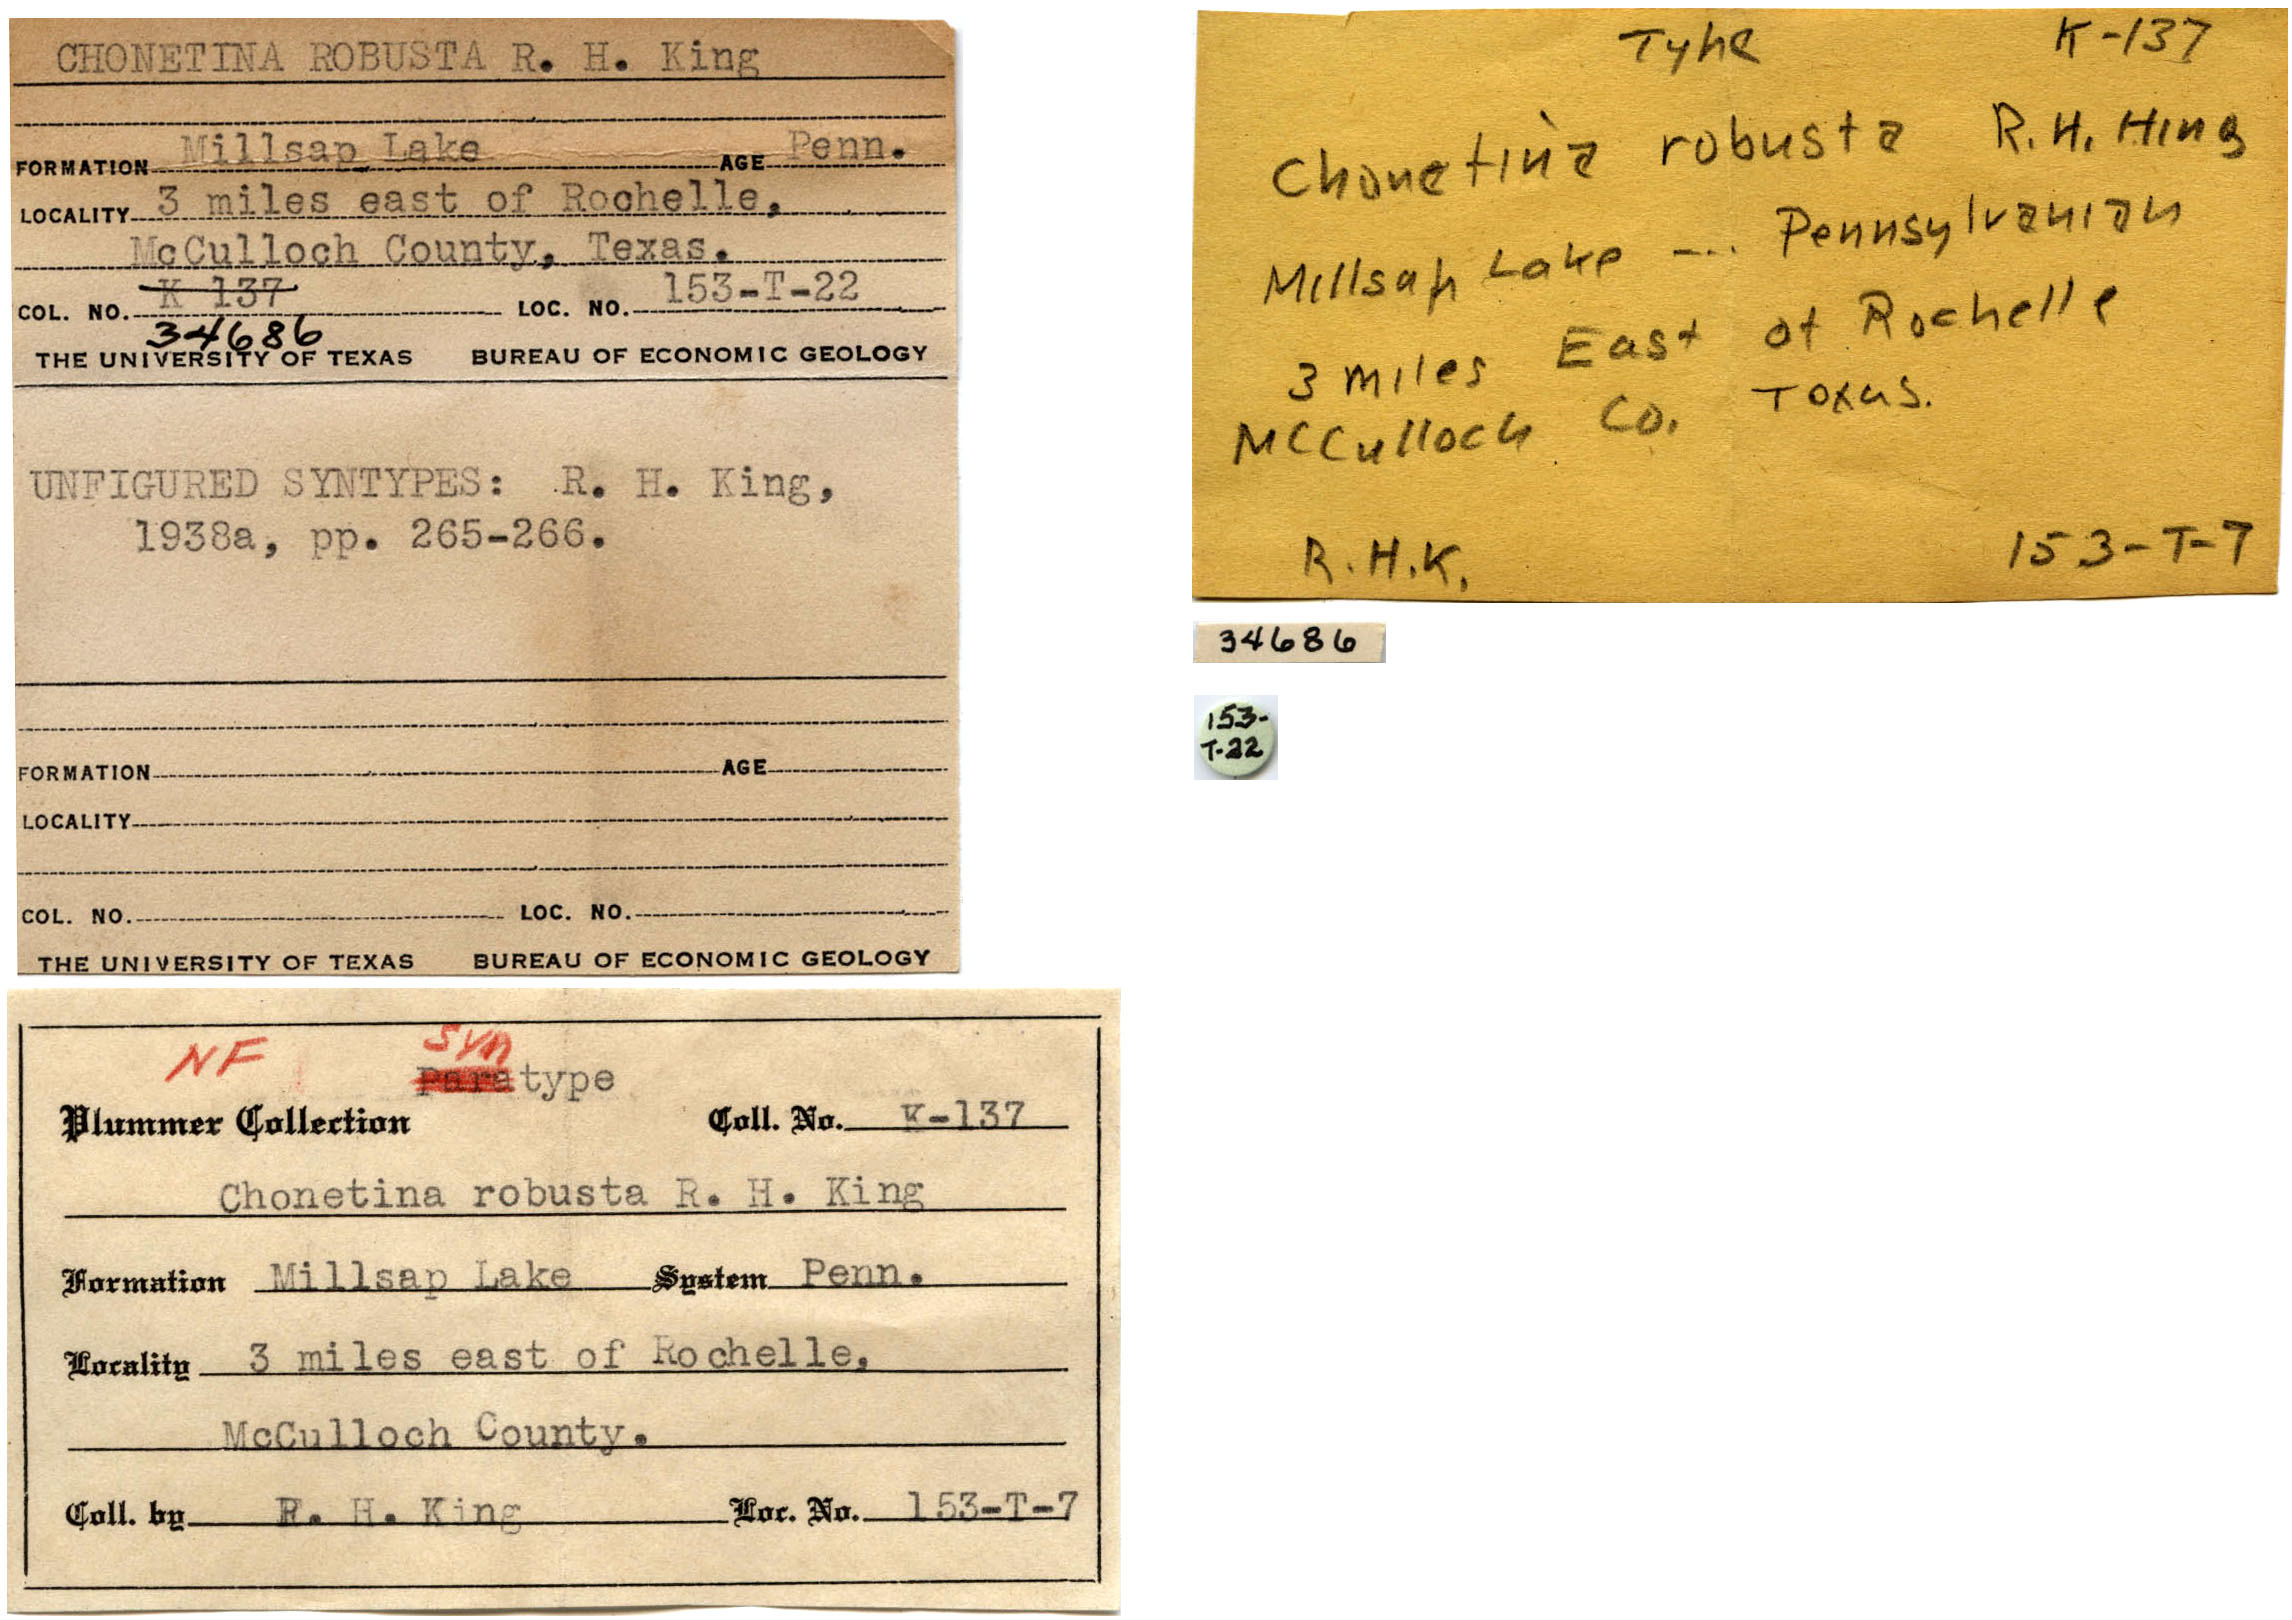 CHONETINA ROBUSTA R. H. King
FORMATION Millsap Lake AGE Penn.
LOCALITY 3 miles east of Rochelle,
McCulloch County, Texas.
COL. NO. K 137 LOC. NO. 153-T-22
34686
THE UNIVERSITY OF TEXAS BUREAU OF ECONOMIC GEOLOGY
UNFIGURED SYNTYPES: R. H. King,
1938a, pp. 265-266.
FORMATION AGE
LOCALITY
COL. NO. LOC. NO.
THE UNIVERSITY OF TEXAS BUREAU OF ECONOMIC GEOLOGY
NF Syn
Paratype
Plummer Collection Coll. No. K-137
Chonetina robusta R. H. King
Formation Millsap Lake System Penn.
Locality 3 miles east of Rochelle,
McCulloch County.
Coll. by R. H. King Loc. No. 153-T-7
Type K-137
Chonetina robusta R. H. King
Millsap Lake --- Pennsylvanian
3 miles East of Rochelle
McCulloch Co. Texas.
R.H.K. 153-T-7
34686
153-
T-22